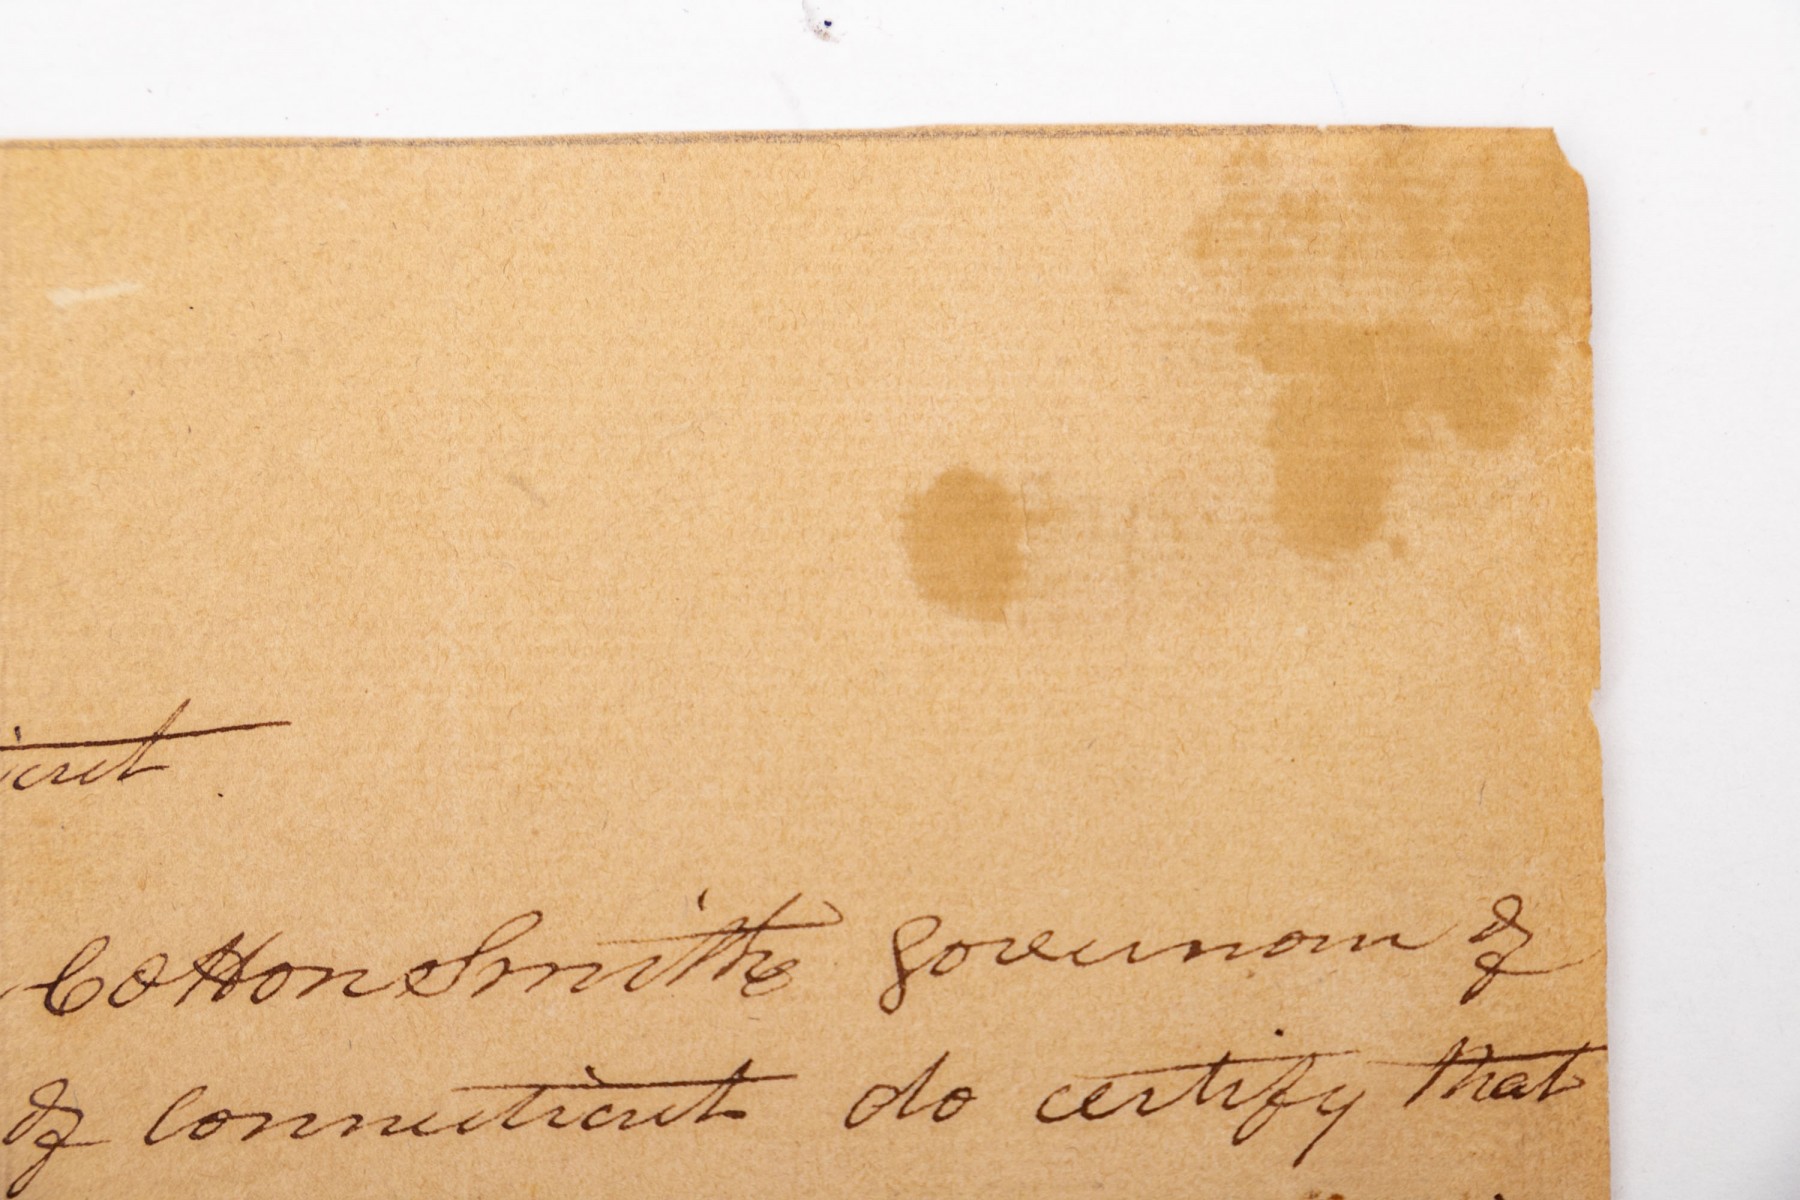 icut
Cotton Smith Governour of
of Connecticut do certify that